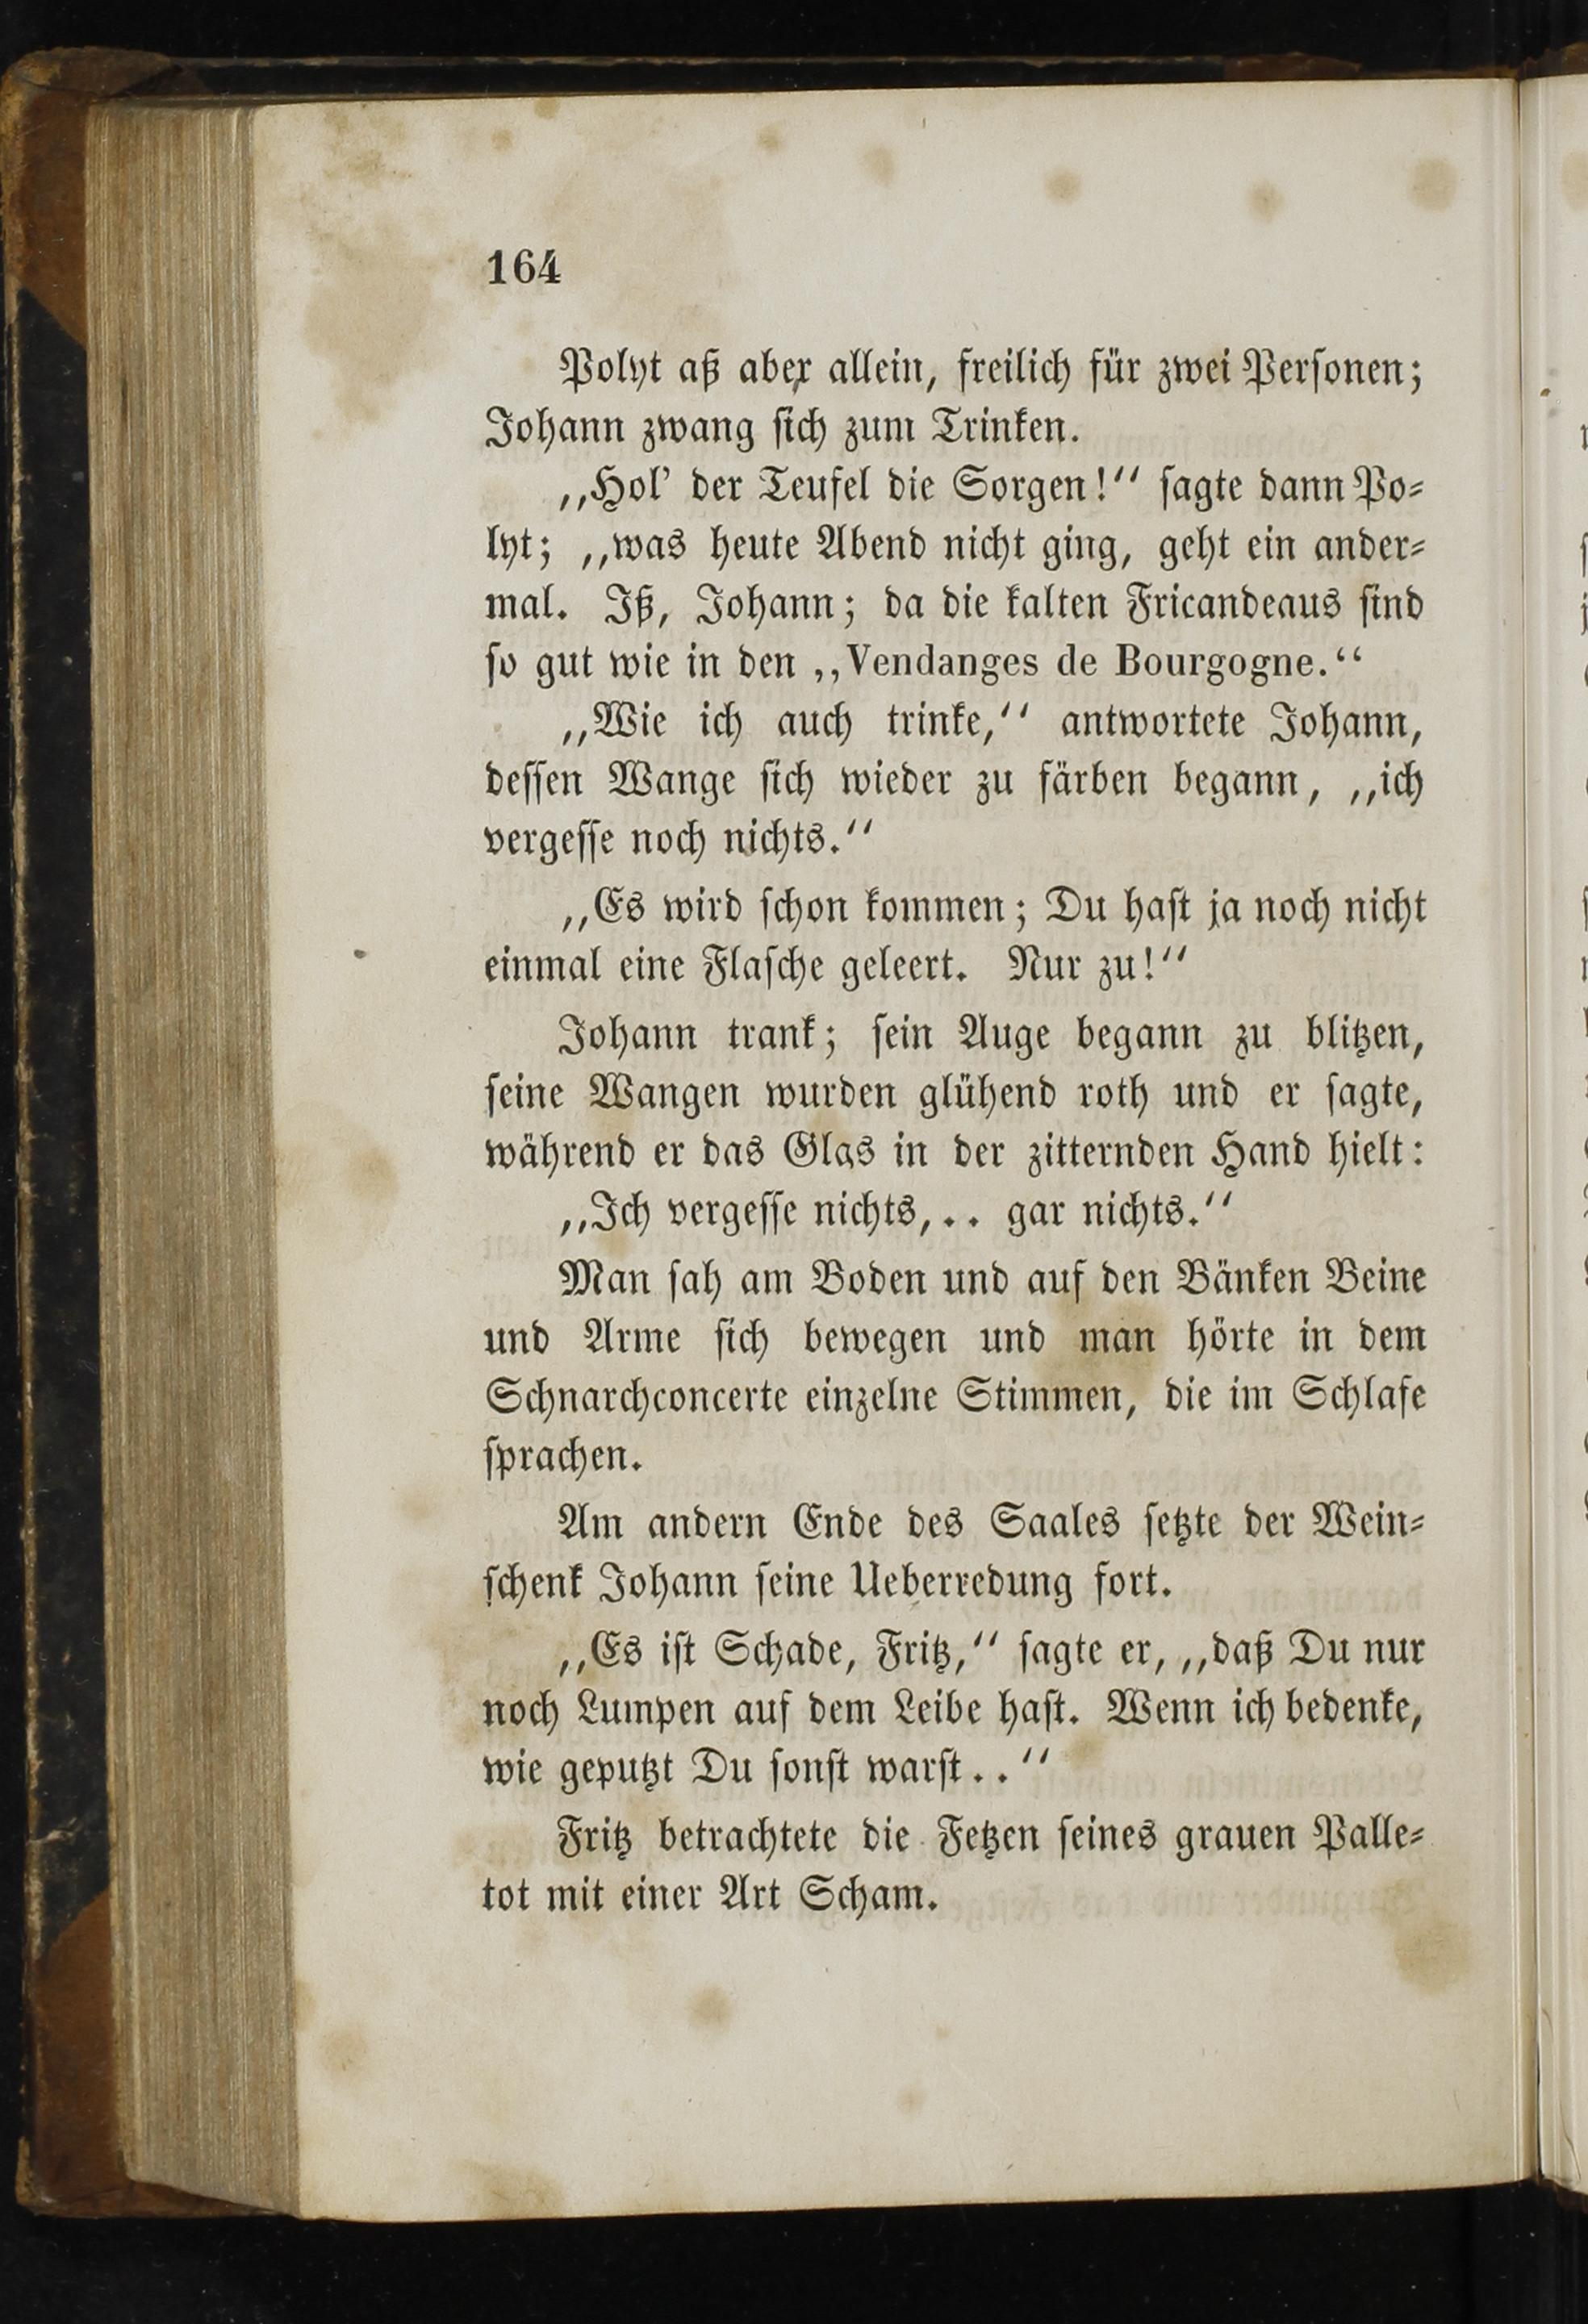 164
Polyt aß aber allein, freilich für zwei Perſonen;
Johann zwang ſich zum Trinken.
„Hol’ der Teufel die Sorgen!“ ſagte dann Po⸗
lyt; „was heute Abend nicht ging, geht ein ander⸗
mal. Iß, Johann; da die kalten Fricandeaus ſind
ſo gut wie in den „Vendanges de Bourgogne.“
„Wie ich auch trinke,“ antwortete Johann,
deſſen Wange ſich wieder zu färben begann, „ich
vergeſſe noch nichts.“
„Es wird ſchon kommen; Du haſt ja noch nicht
einmal eine Flaſche geleert. Nur zu!“
Johann trank; ſein Auge begann zu blitzen,
ſeine Wangen wurden glühend roth und er ſagte,
während er das Glas in der zitternden Hand hielt:
„Ich vergeſſe nichts,.. gar nichts.“
Man ſah am Boden und auf den Bänken Beine
und Arme ſich bewegen und man hörte in dem
Schnarchconcerte einzelne Stimmen, die im Schlafe
ſprachen.
Am andern Ende des Saales ſetzte der Wein⸗
ſchenk Johann ſeine Ueberredung fort.
„Es iſt Schade, Fritz,“ ſagte er, „daß Du nur
noch Lumpen auf dem Leibe haſt. Wenn ich bedenke,
wie geputzt Du ſonſt warſt..“
Fritz betrachtete die Fetzen ſeines grauen Palle⸗
tot mit einer Art Scham.